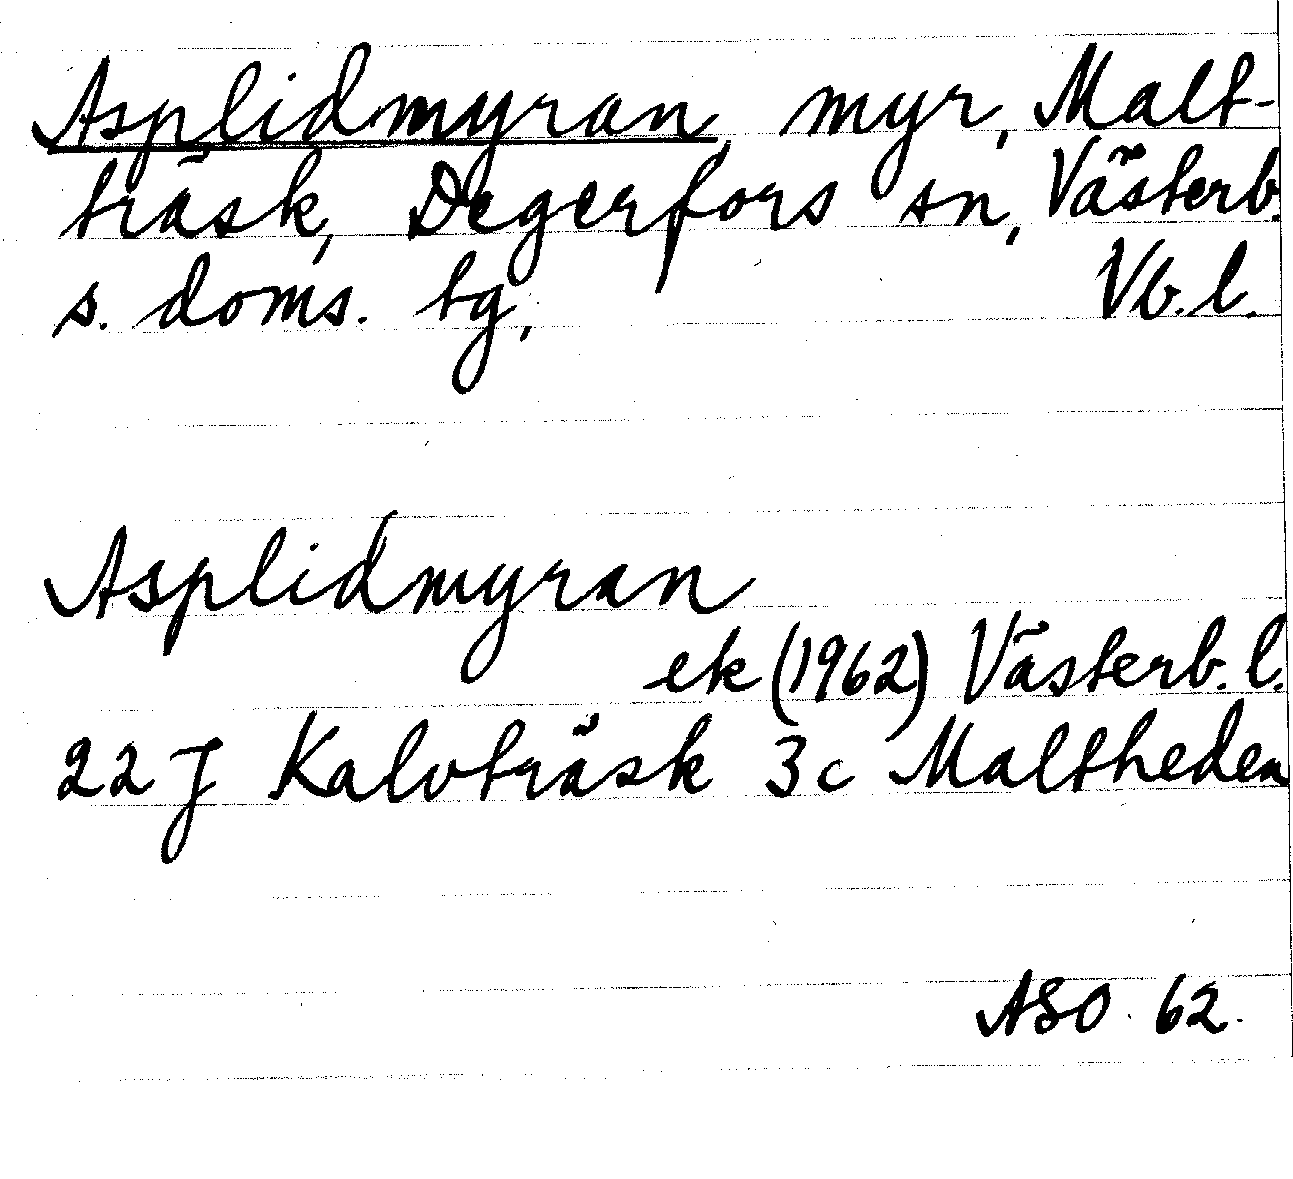 Asplidmyran, myr, Malt-
träsk, Degerfors sn, Västerb.
s. doms. tg, Vb. l.
Asplidmyran
ek (1962) Västerb. l.
22 J Kalvträsk 3c Maltheden
ASO. 62.